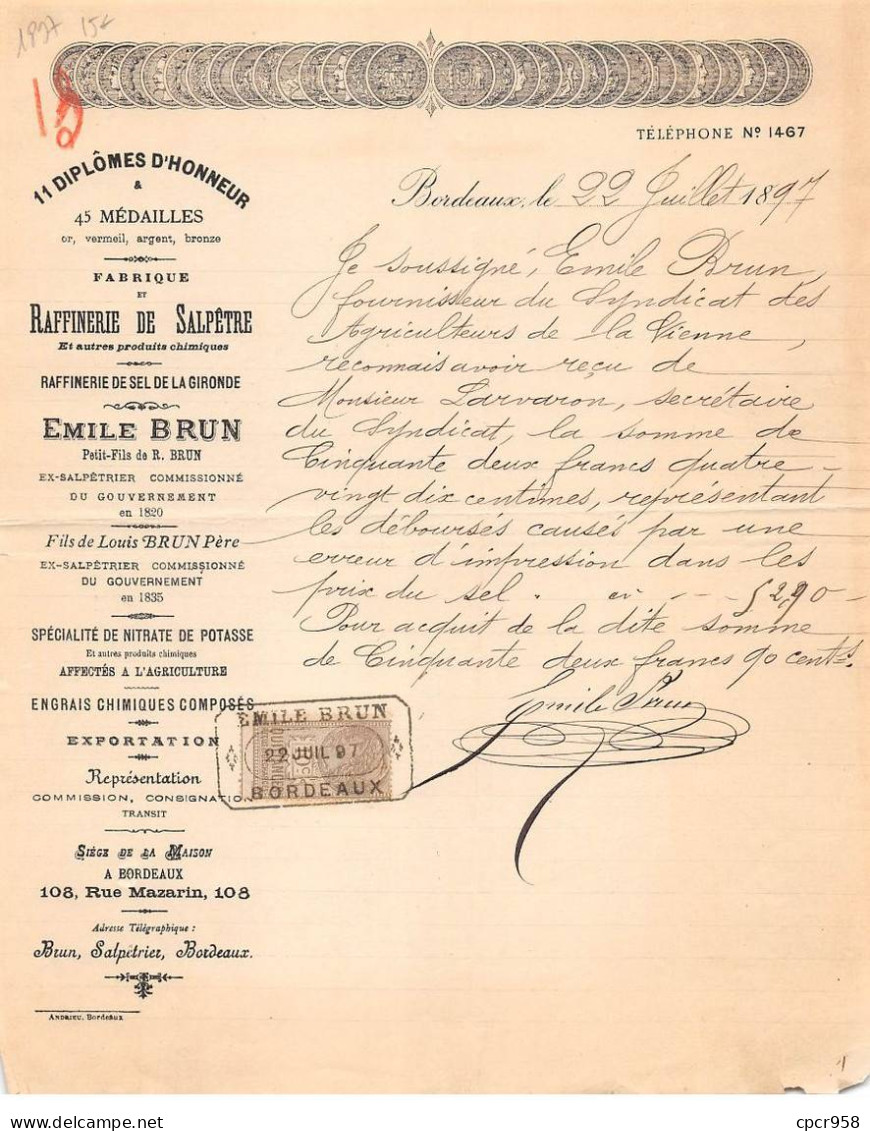 1897 15€
TÉLÉPHONE Nº 1467
11 DIPLÔMES D'HONNEUR
&
45 MÉDAILLES
or, vermeil, argent, bronze
FABRIQUE
ET
RAFFINERIE DE SALPÊTRE
Et autres produits chimiques
RAFFINERIE DE SEL DE LA GIRONDE
EMILE BRUN
Petit-Fils de R. BRUN
EX-SALPÊTRIER COMMISSIONNÉ
DU GOUVERNEMENT
en 1820
Fils de Louis BRUN Père
EX-SALPÊTRIER COMMISSIONNÉ
DU GOUVERNEMENT
en 1835
SPÉCIALITÉ DE NITRATE DE POTASSE
Et autres produits chimiques
AFFECTÉS A L'AGRICULTURE
ENGRAIS CHIMIQUES COMPOSÉS
EXPORTATION
Représentation
COMMISSION, CONSIGNATION
TRANSIT
SIÈGE DE LA MAISON
A BORDEAUX
108, Rue Mazarin, 108
Adresse Télégraphique :
Brun, Salpêtrier, Bordeaux.
ANDRIEU, Bordeaux
Bordeaux, le 22 Juillet 1897
Je soussigné, Emile Brun,
fournisseur du Syndicat des
Agriculteurs de la Vienne,
reconnais avoir reçu de
Monsieur Larvaron, secrétaire
du Syndicat, la somme de
Cinquante deux francs quatre-
vingt dix centimes, représentant
les déboursés causés par une
erreur d'impression dans les
prix du sel . en - - - 52,90 -
Pour acquit de la dite somme
de Cinquante deux francs 90 cents.
Emile Brun
EMILE BRUN
QUITTANCES
22 JUIL 97
BORDEAUX
1
cpcr958